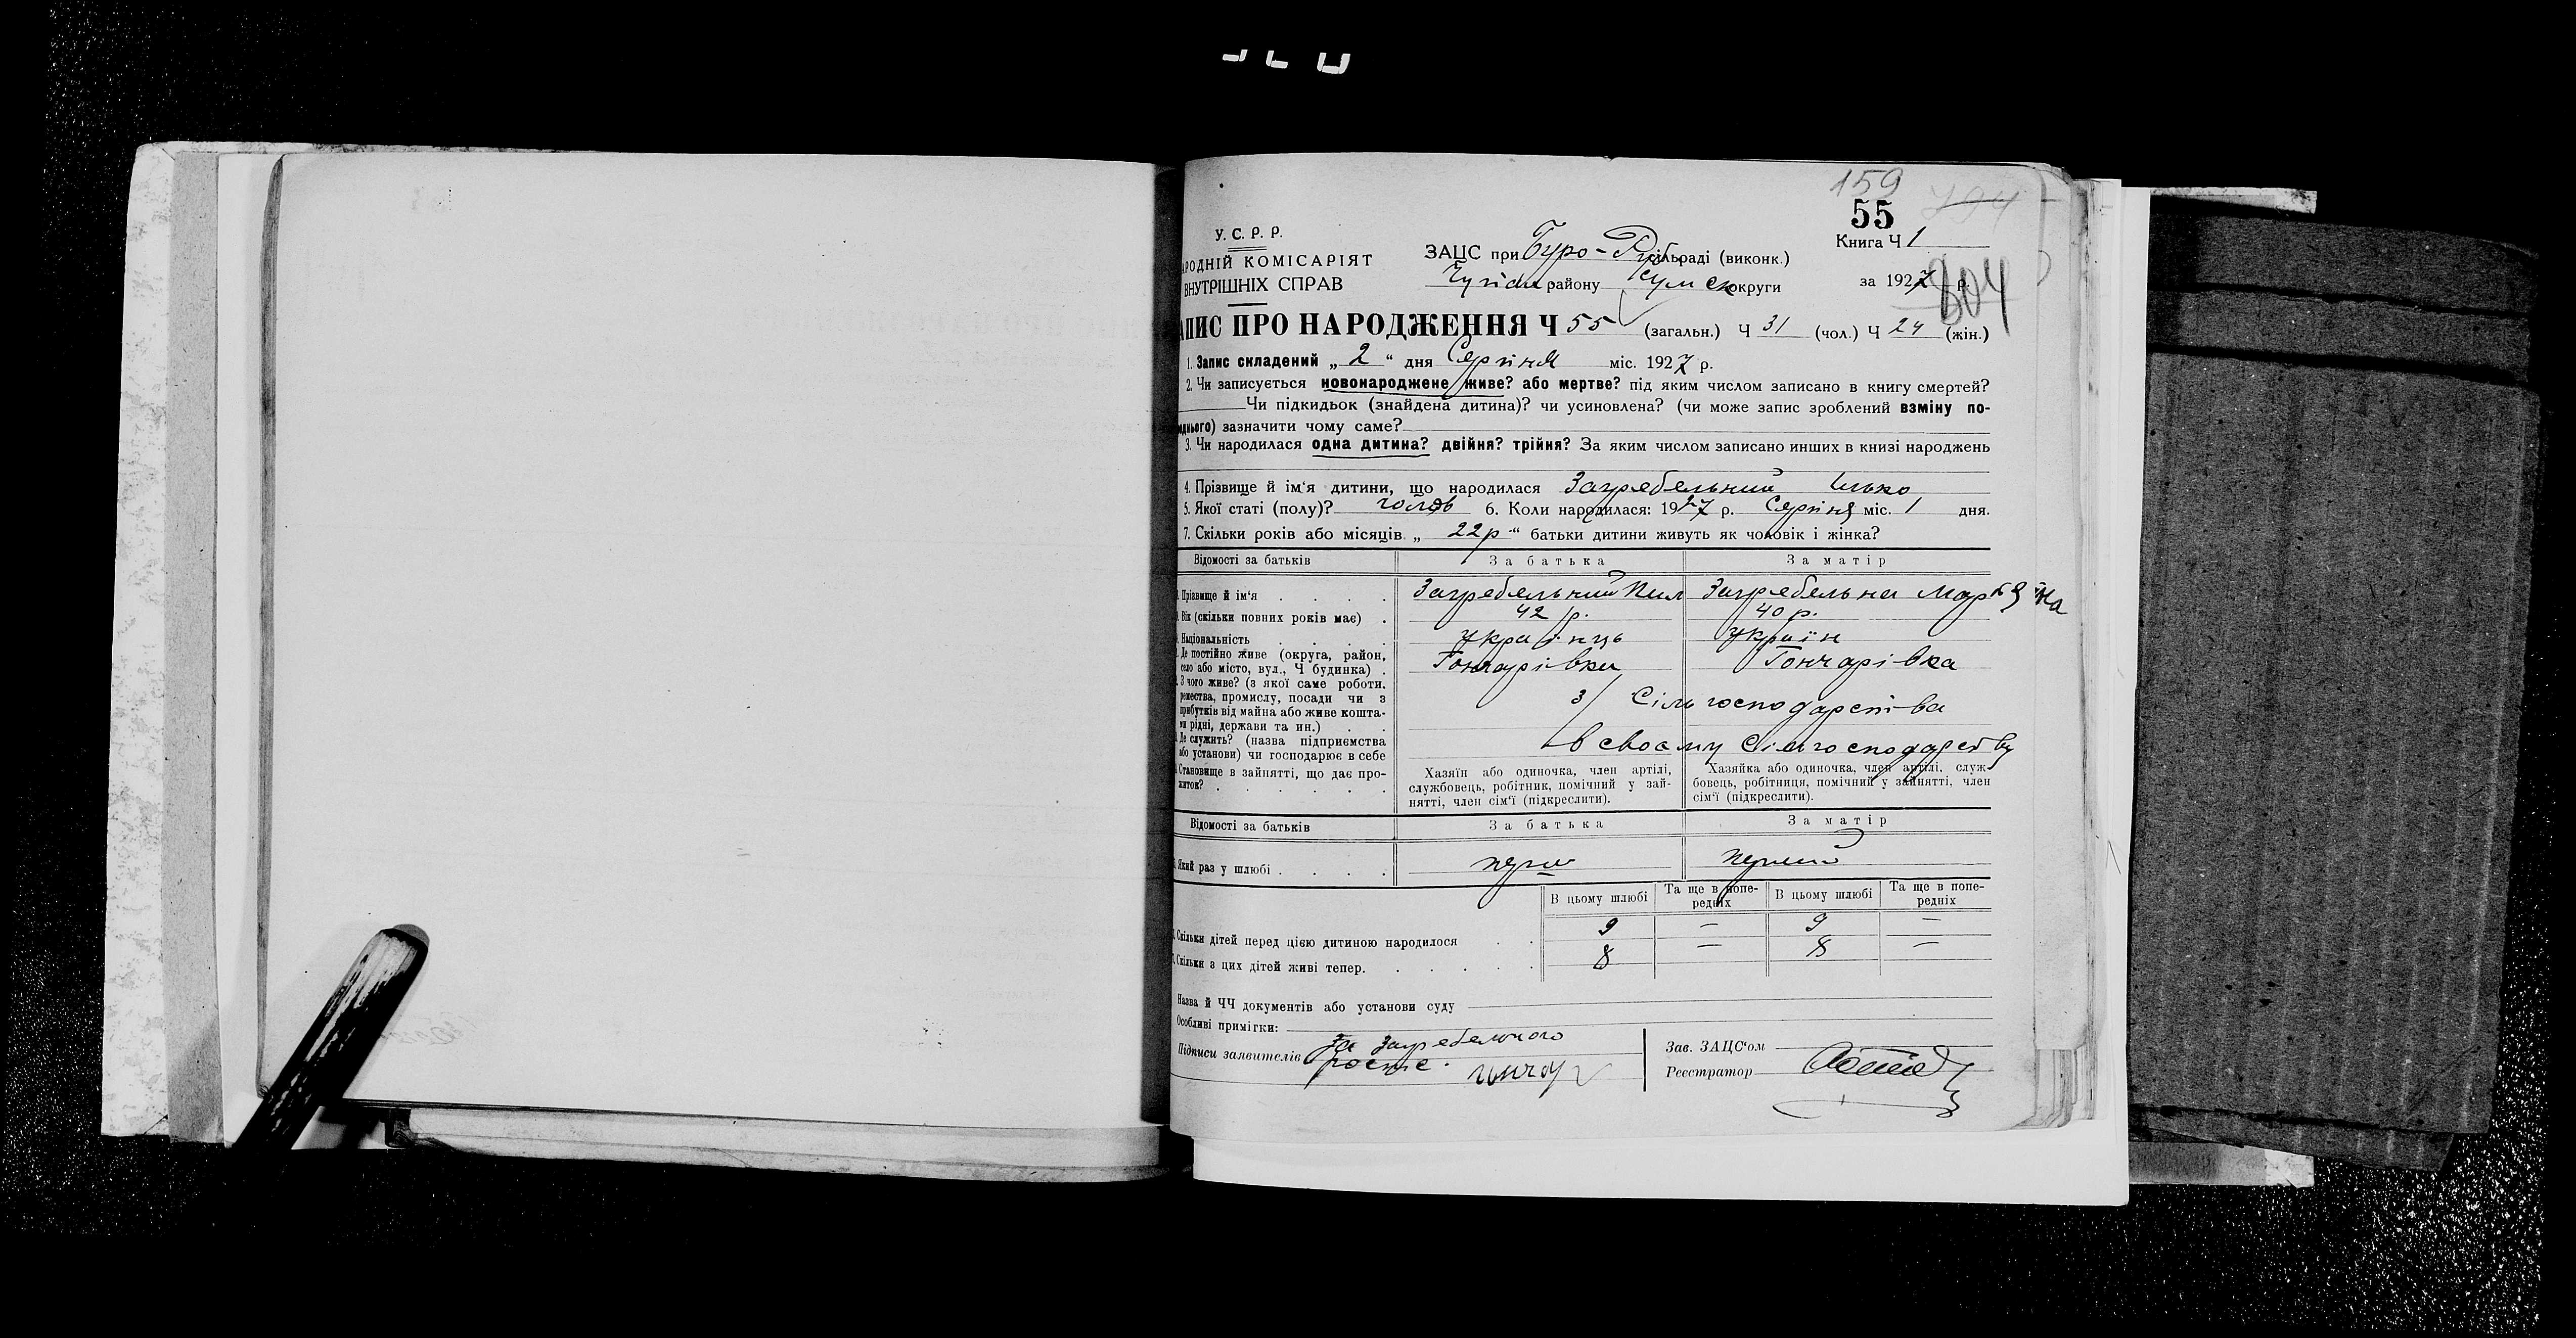 159
55
У. С. Р. Р.
Книга Ч 1
АРОДНІЙ КОМІСАРІЯТ
ВНУТРІШНІХ СПРАВ
ЗАЦС при Буро-Р сільраді (виконк.)
району Сумск округи
за 1927 р.
804
АПИС ПРО НАРОДЖЕННЯ Ч 55 (загальн.) Ч 31 (чол.) Ч 24 (жін.)
1. Запис складений „ 2 “ дня Серпня міс. 1927 р.
2. Чи записується новонароджене живе? або мертве? під яким числом записано в книгу смертей?
Чи підкидьок (знайдена дитина)? чи усиновлена? (чи може запис зроблений взміну по-
еднього) зазначити чому саме?
3. Чи народилася одна дитина? двійня? трійня? За яким числом записано инших в книзі народжень
4. Прізвище й ім‘я дитини, що народилася Загребельний Ілько
5. Якої статі (полу)? чолов 6. Коли народилася: 1927 р. Серпня міс. 1 дня.
7. Скільки років або місяців „ 22 р “ батьки дитини живуть як чоловік і жінка?
Відомості за батьків За батька За матір
Прізвище й ім‘я Загребельний Пил Загребельна
Вік (скільки повних років має) 42 р. 40 р.
Національність Українць Україн
Де постійно живе (округа, район,
село або місто, вул., Ч будинка) Гончарівка Гончарівка
З чого живе? (з якої саме роботи,
ремества, промислу, посади чи з
прибутків від майна або живе кошта-
ми рідні, держави та ин.) з Сільгосподарства
Де служить? (назва підприємства
або установи) чи господарює в себе в своєму Сільгосподарству
Становище в зайнятті, що дає про-
житок?
Хазяїн або одиночка, член артілі,
службовець, робітник, помічний у зай-
нятті, член сім‘ї (підкреслити).
Хазяйка або одиночка, член артілі, служ-
бовець, робітниця, помічний у зайнятті, член
сім‘ї (підкреслити).
Відомості за батьків За батька За матір
Який раз у шлюбі перш перший
В цьому шлюбі Та ще в попе-
редніх В цьому шлюбі Та ще в попе-
редніх
Скільки дітей перед цією дитиною народилося 9 — 9 —
Скільки з цих дітей живі тепер. 8 — 8 —
Назва й ЧЧ документів або установи суду
Особливі примітки:
Підписи заявителів За Загребельного
Зав. ЗАЦС‘ом
Реєстратор